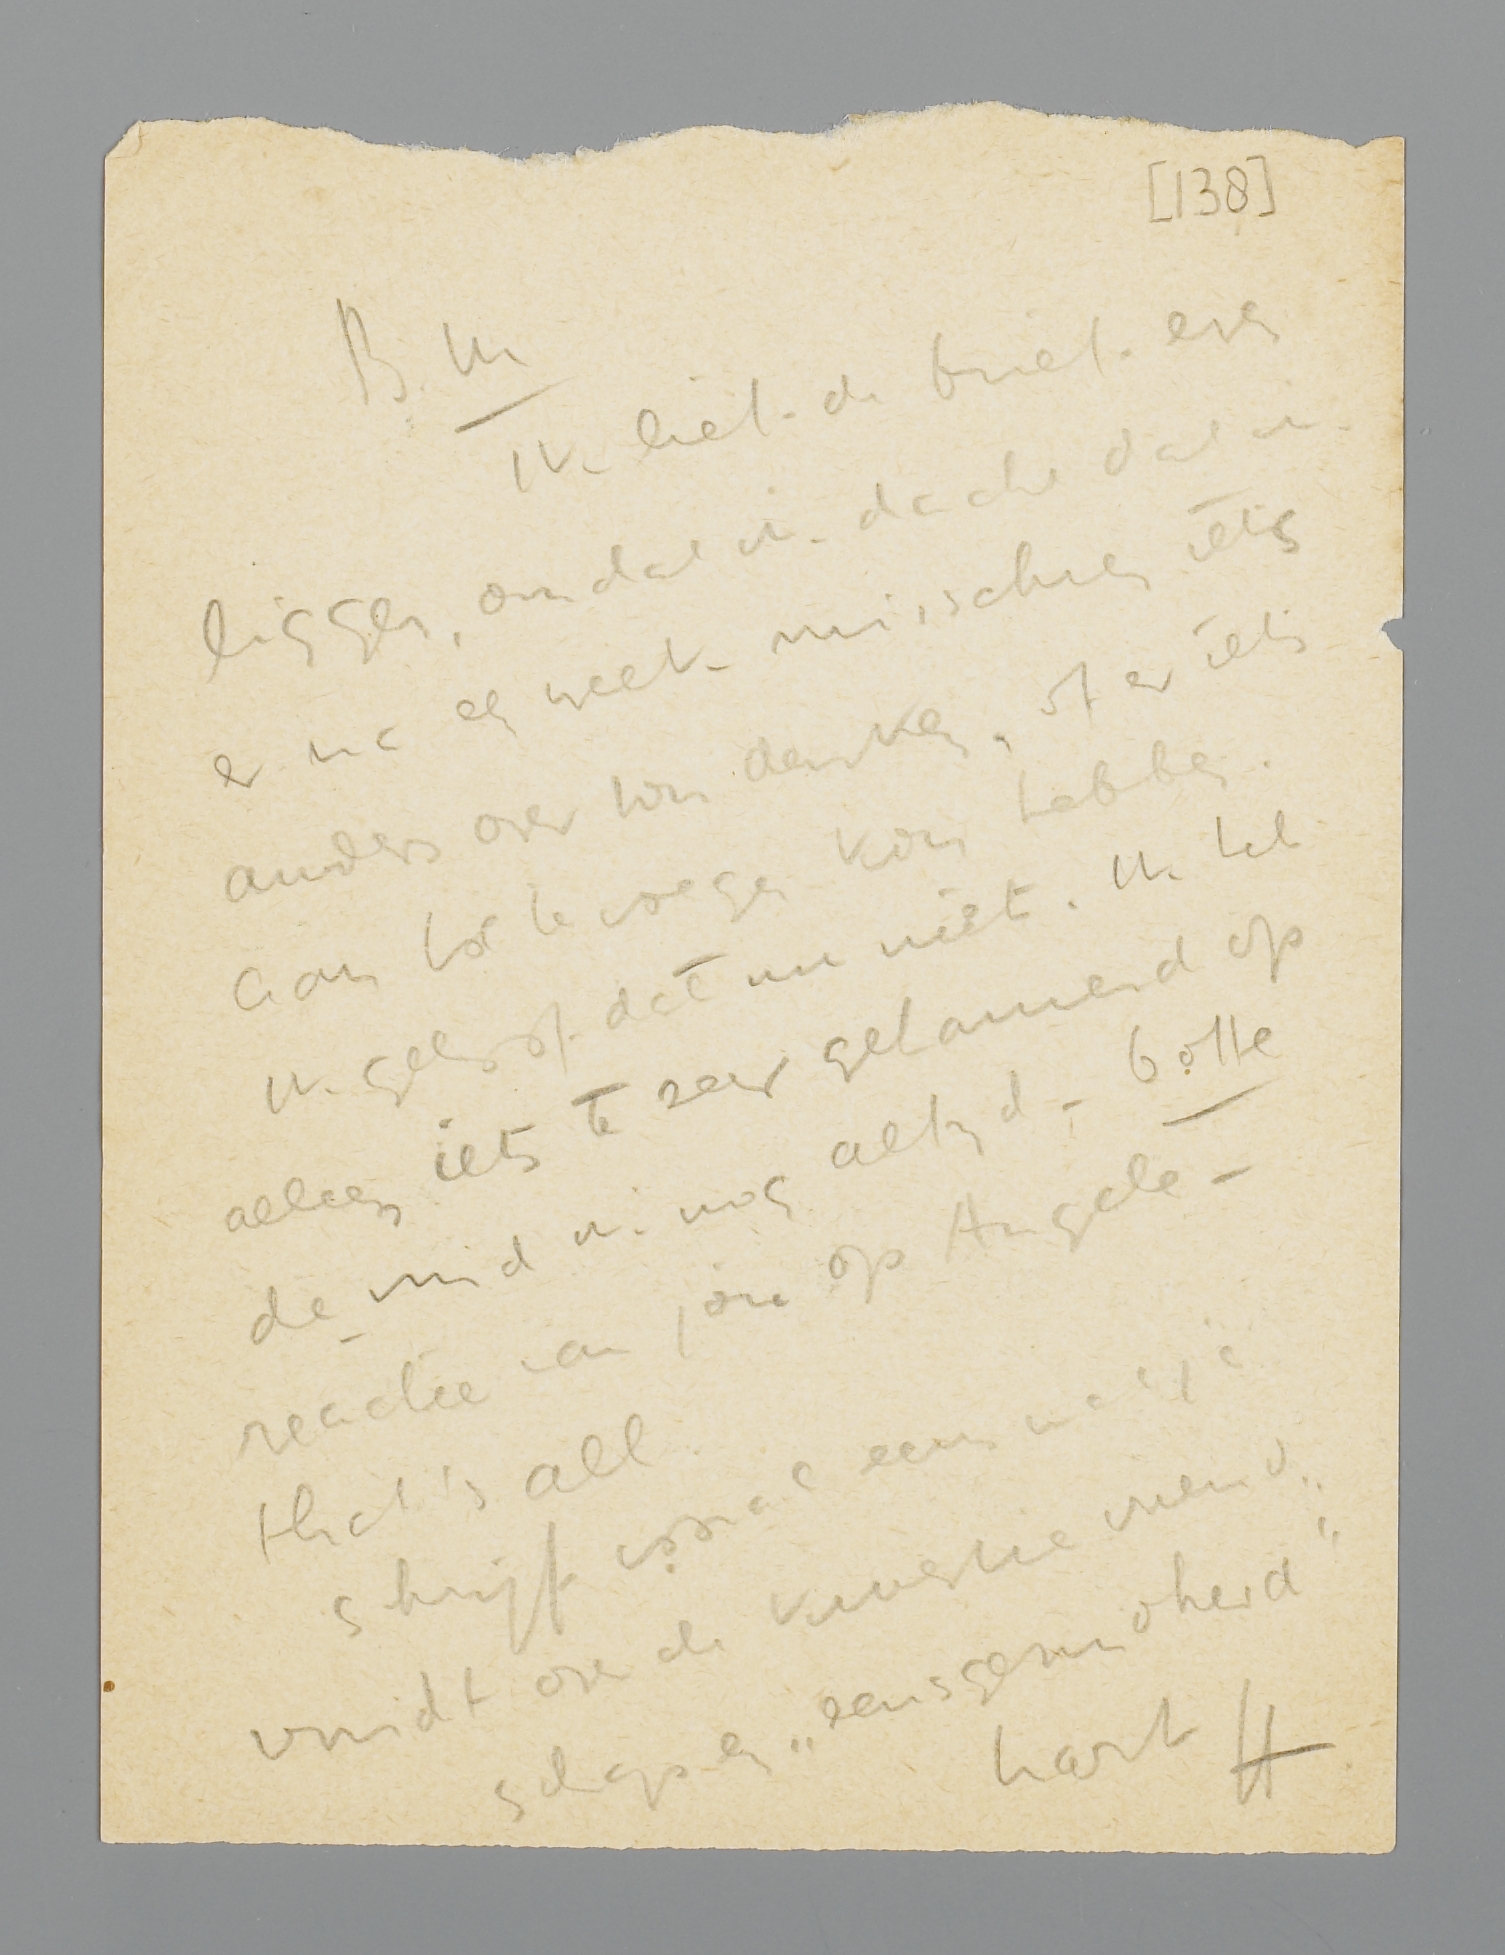 [138]
B. M
Ik liet de brief even
liggen, omdat ik dacht dat ik
er na een week misschien iets
anders over kon denken, of er iets
aan toe te voegen kon hebben.
Ik geloof dat nu niet. Ik heb
alleen iets te zeer gehamerd op
de vind ik nog altijd - botte
reactie van jou op Angele -
that's all.
schrijf vooral eens wat je
vindt over de kwestie vriend-
schap en "eensgezindheid"
hart H